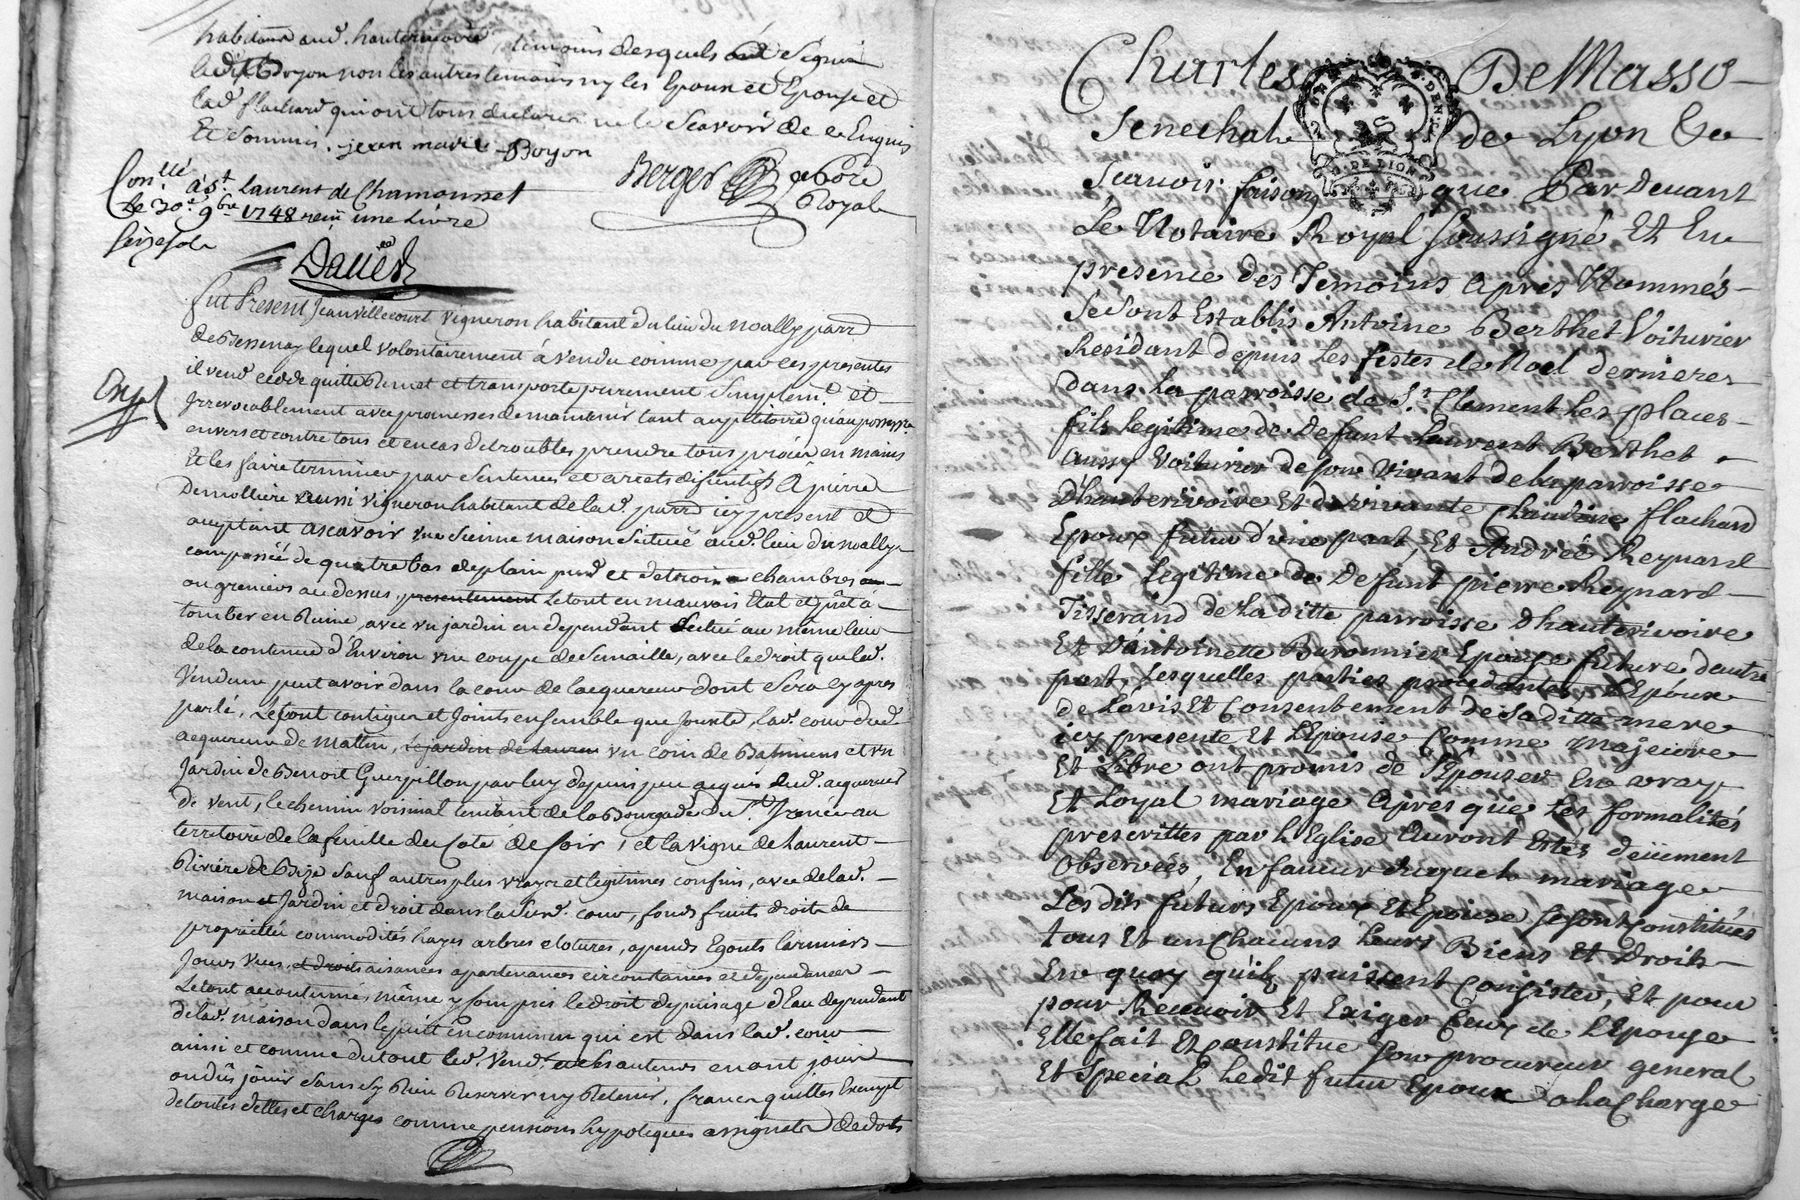 habitant aud. hauterivoire, temoins desquels ont Signé
ledit Boyon non les autres temoins ny les Epoux et Epouse et
lad. flachard qui ont tous declaré ne le Scavoir de ce Enquis
Et Sommis. jean marie Boyon
Berger
Royal
Con.llé à S.t Laurent de Chamousset
Le 30.e 9.bre 1748 reçu une Livre
Seize sols
Daviet
Exp.
fut Present Jean villecourt vigneron habitant du lieu du noally parr.
de Bessenay lequel volontairement à vendu comme par ces presentes
il vend cedde quitte Remet et transporte purement Simplem.t et
Irrevocablement avec promesses de maintenir tant au petitoire qu'au possess.re
envers et contre tous et en cas de troubles prendre tous procès en mains
Et les faire terminer par Sentences et arrets definitifs À pierre
Demolliere aussi vigneron habitant de lad. parr. icy present et
aceptant ascavoir une Sienne maison Scituée aud. lieu du noally
composée de quatre bas de plain pied et de trois chambres
ou greniers au dessus, presentement Le tout en mauvais Etat et prêt à
tomber en Ruine, avec un jardin en dependant Scitué au même lieu
de la contenue d'Environ une coupe de Semaille, avec le droit que led.
Vendeur peut avoir dans la cour de l'acquereur dont Sera cy apres
parlé, Le tout contigu et Joints ensemble que Jouxte, lad. cour dud.
acquereur de matin, Le jardin de Laurent un coin de Batimens et un
Jardin de Benoit Guerpillon par luy depuis peu acquis dud. acquereur
de vent, le chemin voisinal tendant de la Bourgade du S.t Irenée au
territoire de la feuille du Coté de soir, et la vigne de Laurent
Riviére de Bize Sauf autres plus vrays et legitimes confins, avec de lad.
maison et Jardin et droit dans la Susd. cour, fonds fruits droits de
propriettée commodités hayes arbres clotures, apends Egouts larmiers
Jours vues, et droits aisances apartenances circonstances et dependances
Le tout accoutumés même y compris le droit de puisage d'Eau dependant
de lad. maison dans le puit en commun qui est dans lad. cour
ainsi et comme du tout led. Vend.r et ses auteurs en ont joui
ou dû jouir Sans S'y Rien Reserver ny Retenir, franc quittes Exempt
de toutes dettes et charges comme pensions hypoteques assignats de dots
Charles De Masso
Senechal de Lyon &c
Scavoir faisons que Par Devant
Le Notaire Royal Soussigné Et En
presence des Temoins Apres Nommés
Se Sont Establis Antoine Berthet Voiturier
Residant depuis les festes de Noel dernieres
dans la parroisse de S.t Clement Les places
fils legitime de Defunt Laurent Berthet
aussy Voiturier de Son Vivant de la parroisse
D'hauterivoire Et de vivante Claudine flachard
Epoux futur d'une part, Et Andreé Reynard
fille legitime de Defunt pierre Reynard
Tisserand de La ditte parroisse D'hauterivoire
Et D'antoinette Buronnier Epouse future d'autre
part, Lesquelles parties procedantes L'Epoux
de L'avis Et Consentement de Saditte mere
icy presente Et L'Epouse Comme Majeure
Et Libre ont promis de S'Epouser En vray
Et Loyal mariage Apres que Les formalités
prescrittes par L'Eglise Auront Estés deüement
Observées, En faveur duquel mariage
Lesdits futurs Epoux Et Epouse se sont Constitués
tous Et un Chacuns Leurs Biens Et Droits
En quoy qu'ils puissent Consister, Et pour
pour Recevoir Et Exiger Ceux de L'Epouse
Elle fait Et Constitue Son procureur general
Et Special Ledit futur Epoux a la Charge